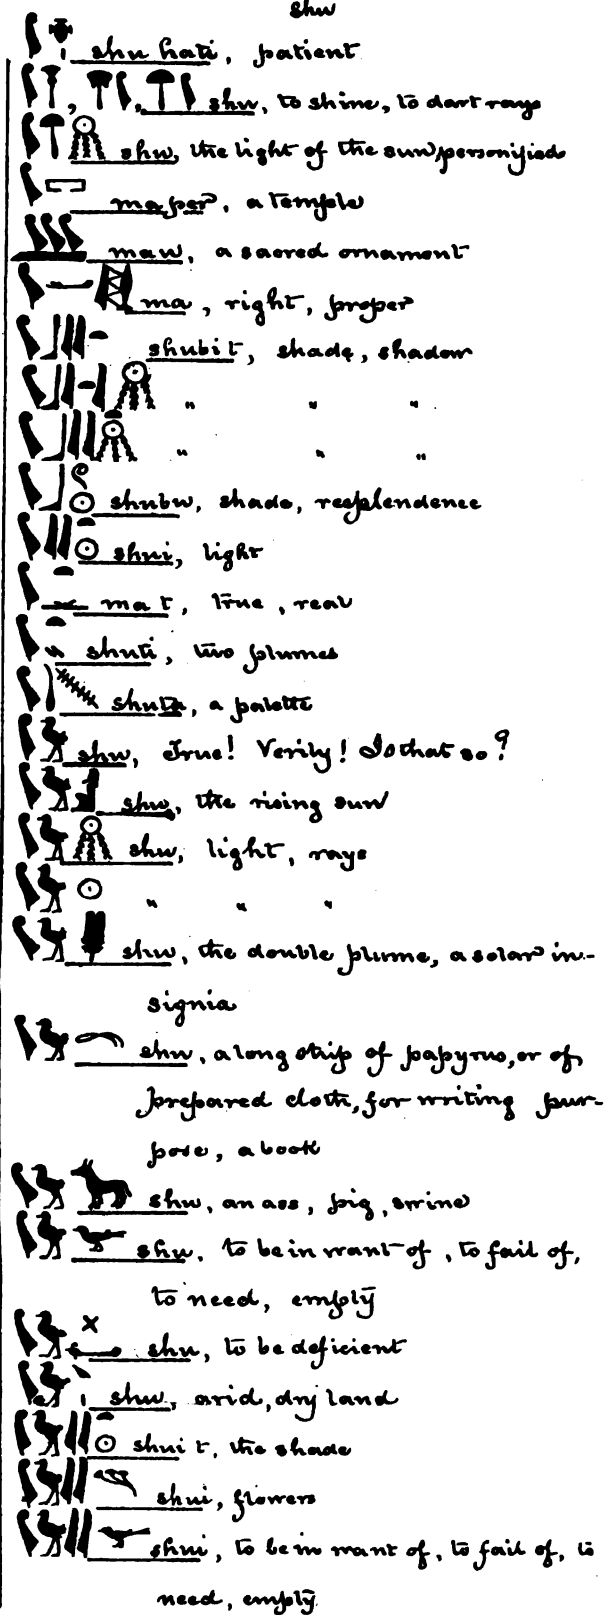 shu
shu hati, patient
, , shu, to shine, to dart rays
shu, the light of the sun, personified
ma per, a temple
mau, a sacred ornament
ma, right, proper
shubit, shade, shadow
" " "
" " "
shubu, shade, resplendence
shui, light
ma t, true, real
shuti, two plumes
, a palette
shu, True! Verily! Is that so?
shu, the rising sun
shu, light, rays
" " "
shu, the double plume, a solar in-
signia
shu, a long strip of papyrus, or of
prepared cloth, for writing pur-
pose, a book
shu, an ass, pig, swine
shu, to be in want of, to fail of,
to need, empty
shu, to be deficient
shu, arid, dry land
shui t, the shade
shui, flowers
shui, to be in want of, to fail of, to
need, empty